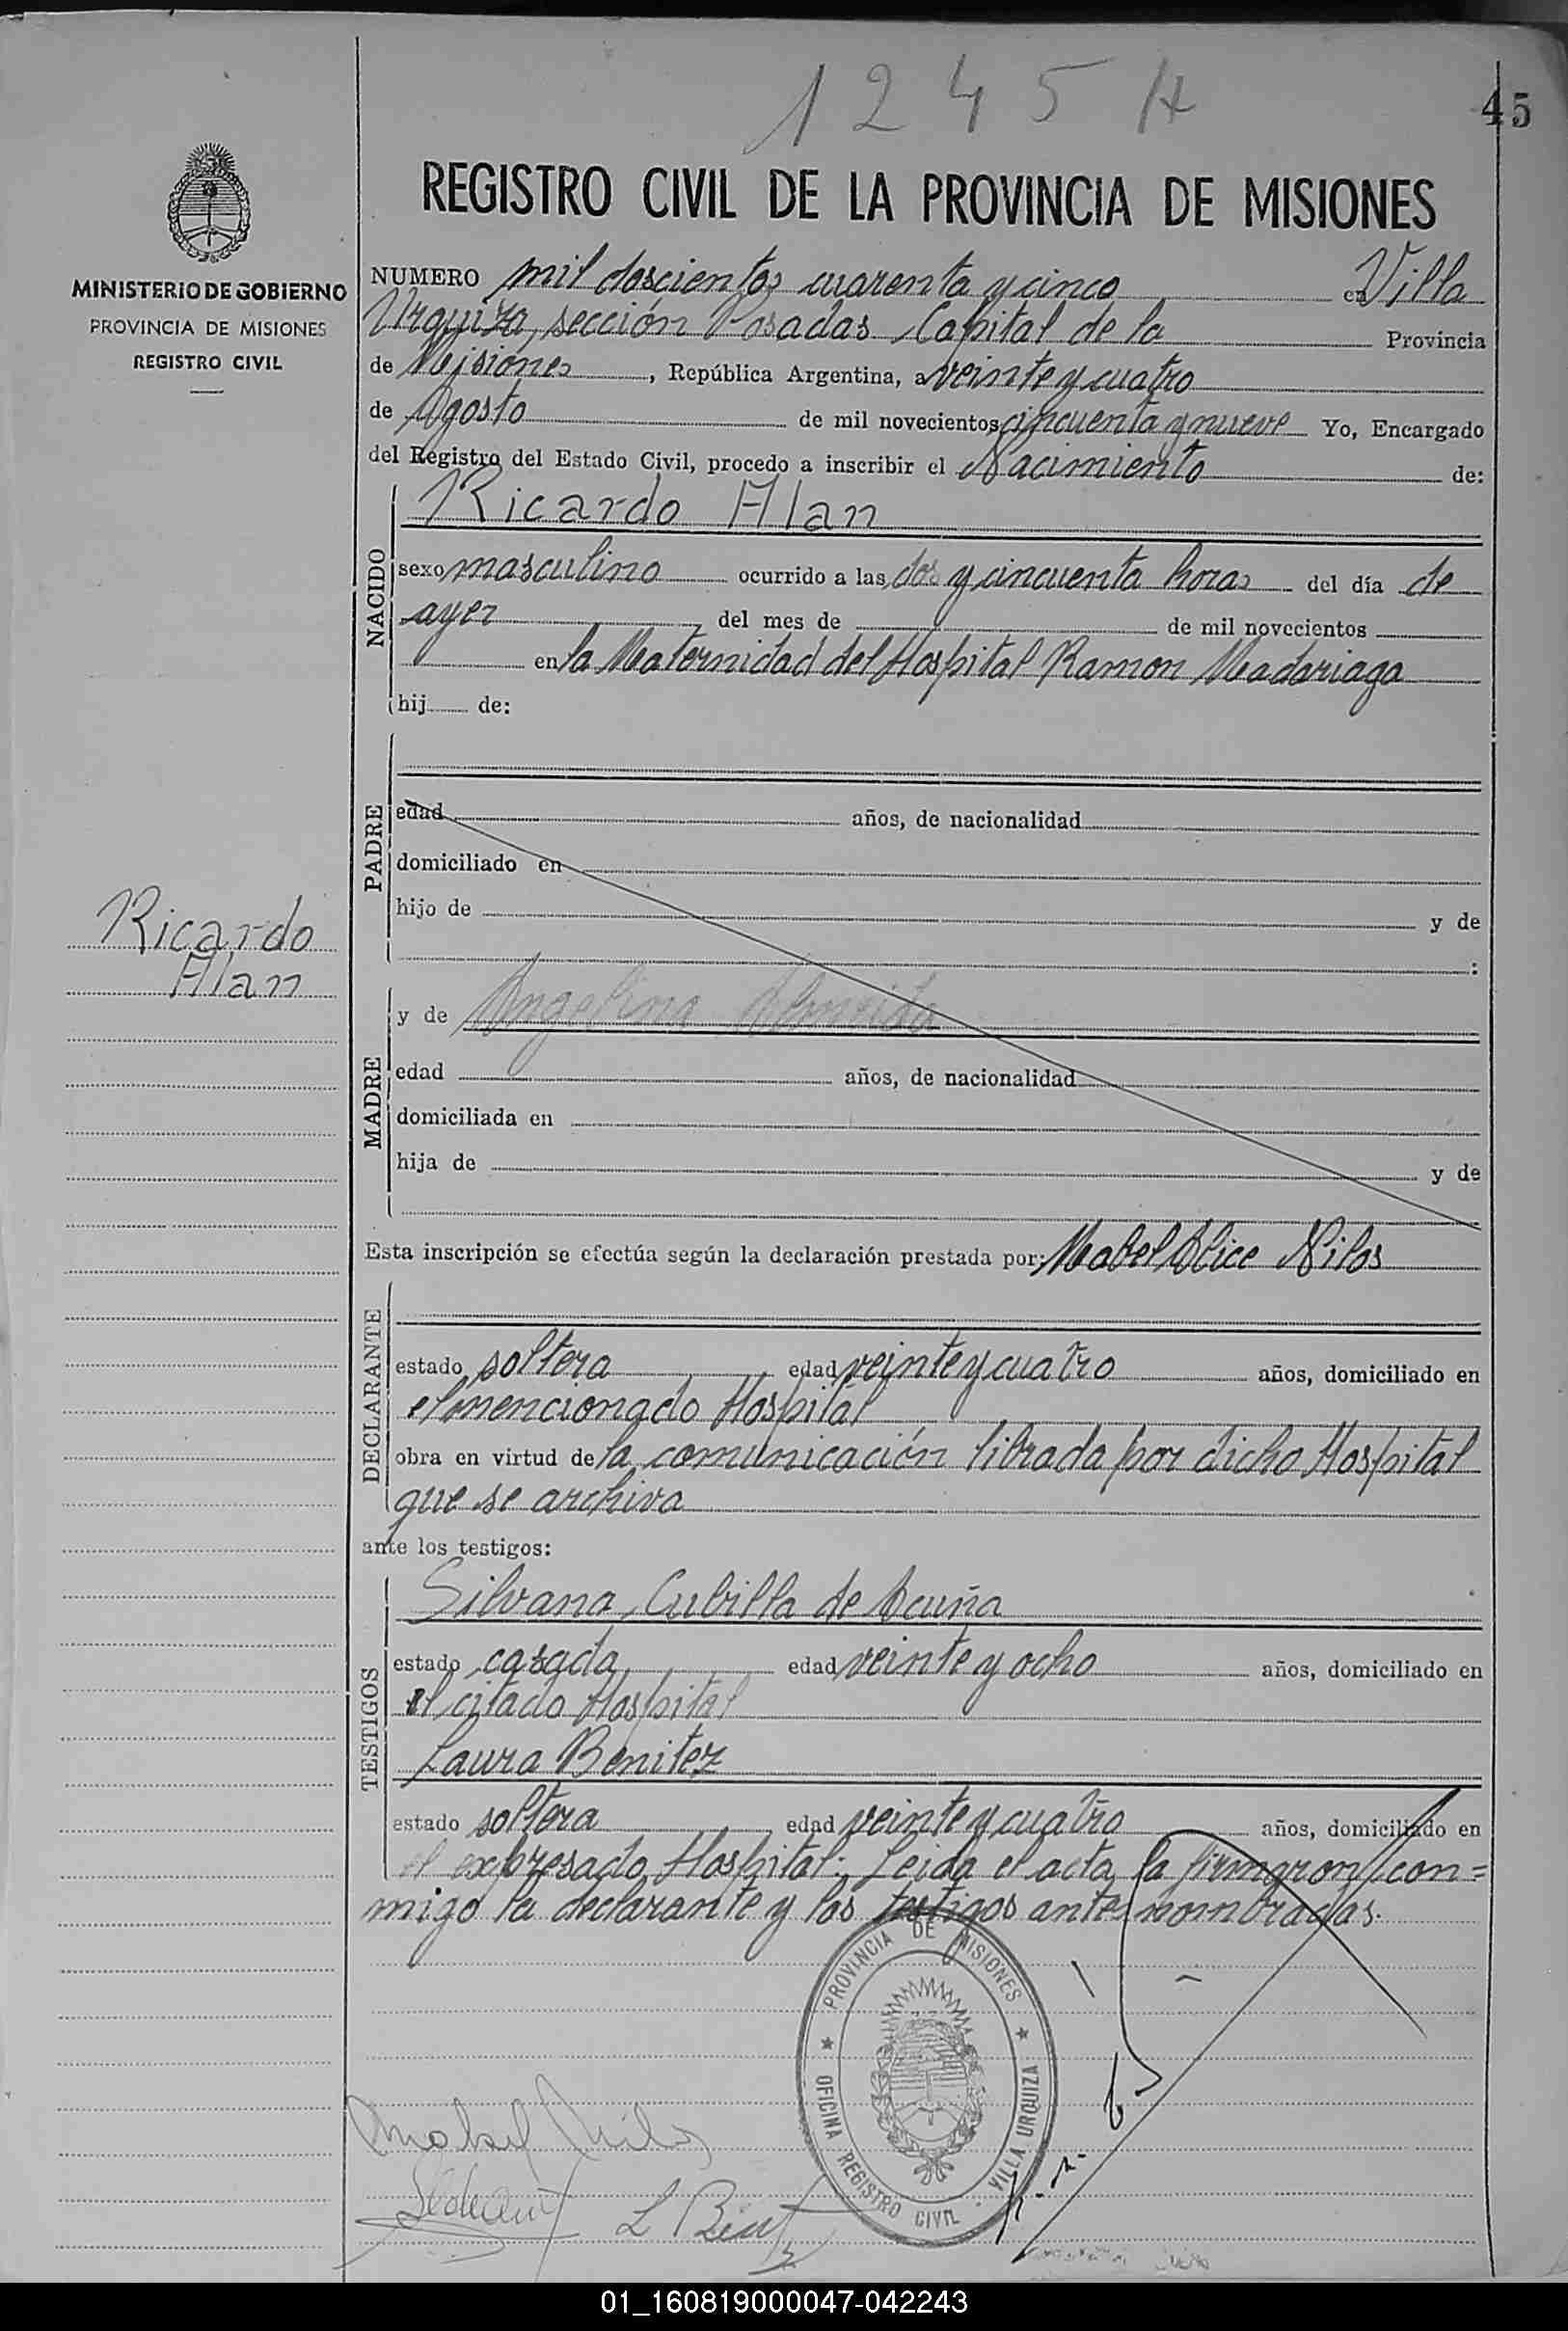 1245 A
45
REGISTRO CIVIL DE LA PROVINCIA DE MISIONES
MINISTERIO DE GOBIERNO
PROVINCIA DE MISIONES
REGISTRO CIVIL
NUMERO mil doscientos cuarenta y cinco en Villa
Urquiza, sección Posadas Capital de la Provincia
de Misiones, República Argentina, a veinte y cuatro
de Agosto de mil novecientos cincuenta y nueve Yo, Encargado
del Registro del Estado Civil, procedo a inscribir el Nacimiento de:
NACIDO
Ricardo Alan
sexo masculino ocurrido a las dos y cincuenta horas del día de
ayer del mes de de mil novecientos
en la Maternidad del Hospital Ramon Madariaga
hij de:
PADRE
edad años, de nacionalidad
domiciliado en
hijo de y de
:
Ricardo
Alan
MADRE
y de Angelina Almeida
edad años, de nacionalidad
domiciliada en
hija de y de
Esta inscripción se efectúa según la declaración prestada por: Mabel Alice Nilos
DECLARANTE
estado soltera edad veinte y cuatro años, domiciliado en
el mencionado Hospital
obra en virtud de la comunicación librada por dicho Hospital
que se archiva
ante los testigos:
TESTIGOS
Silvana Cubilla de Acuña
estado casada edad veinte y ocho años, domiciliado en
el citado Hospital
Laura Benitez
estado soltera edad veinte y cuatro años, domiciliado en
el expresado Hospital: Leida el acta la firmaron con=
migo la declarante y los testigos ante nombradas.
PROVINCIA DE MISIONES
OFICINA REGISTRO CIVIL - VILLA URQUIZA
Mabel Nilos
L Benitez
01_160819000047-042243